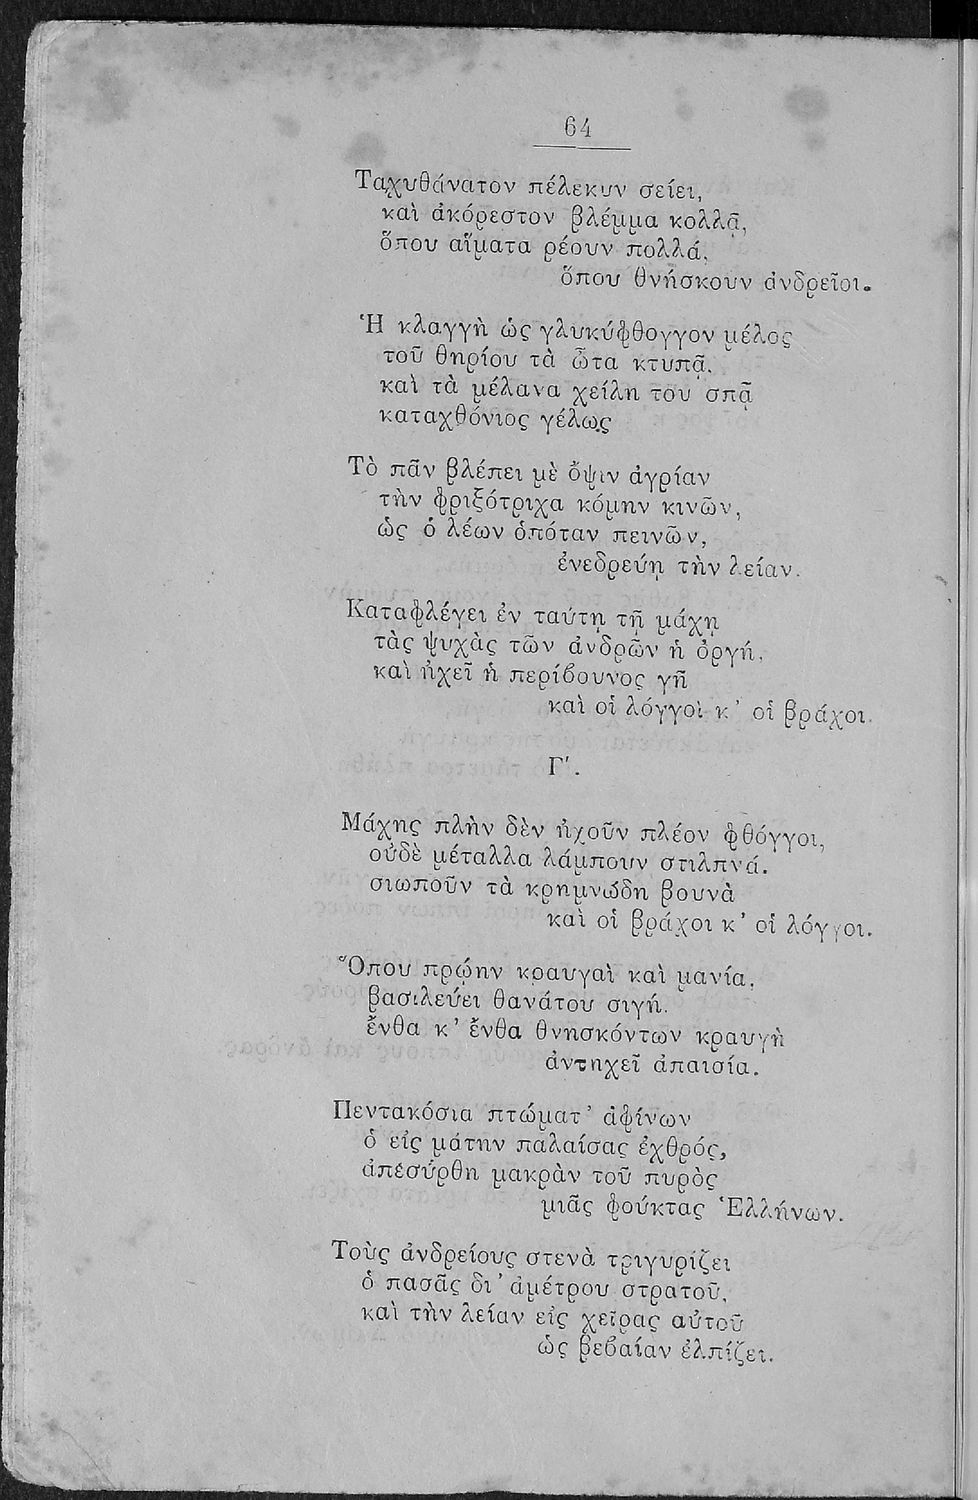 64
Ταχυθάνατον πέλεκυν σείει,
καὶ ἀκόρεστον βλέμμα κολλᾷ,
ὅπου αἵματα ρέουν πολλά,
ὅπου θνήσκουν ἀνδρεῖοι.
Ἡ κλαγγὴ ὡς γλυκύφθογγον μέλος
τοῦ θηρίου τὰ ὦτα κτυπᾷ,
καὶ τὰ μέλανα χείλη του σπᾷ
καταχθόνιος γέλως
Τὸ πᾶν βλέπει μὲ ὄψιν ἀγρίαν
τὴν φριξότριχα κόμην κινῶν,
ὡς ὁ λέων ὁπόταν πεινῶν,
ἐνεδρεύῃ τὴν λείαν.
Καταφλέγει ἐν ταύτῃ τῇ μάχῃ
τὰς ψυχὰς τῶν ἀνδρῶν ἡ ὀργή,
καὶ ἠχεῖ ἡ περίβουνος γῆ
καὶ οἱ λόγγοι κ’ οἱ βράχοι.
Γ′.
Μάχης πλὴν δὲν ἠχοῦν πλέον φθόγγοι,
οὐδὲ μέταλλα λάμπουν στιλπνά.
σιωποῦν τὰ κρημνώδη βουνὰ
καὶ οἱ βράχοι κ’ οἱ λόγγοι.
Ὅπου πρῴην κραυγαὶ καὶ μανία,
βασιλεύει θανάτου σιγή.
ἔνθα κ’ ἔνθα θνησκόντων κραυγὴ
ἀντηχεῖ ἀπαισία.
Πεντακόσια πτώματ’ ἀφίνων
ὁ εἰς μάτην παλαίσας ἐχθρός,
ἀπεσύρθη μακρὰν τοῦ πυρὸς
μιᾶς φούκτας Ἑλλήνων.
Τοὺς ἀνδρείους στενὰ τριγυρίζει
ὁ πασᾶς δι’ ἀμέτρου στρατοῦ,
καὶ τὴν λείαν εἰς χεῖρας αὐτοῦ
ὡς βεβαίαν ἐλπίζει.